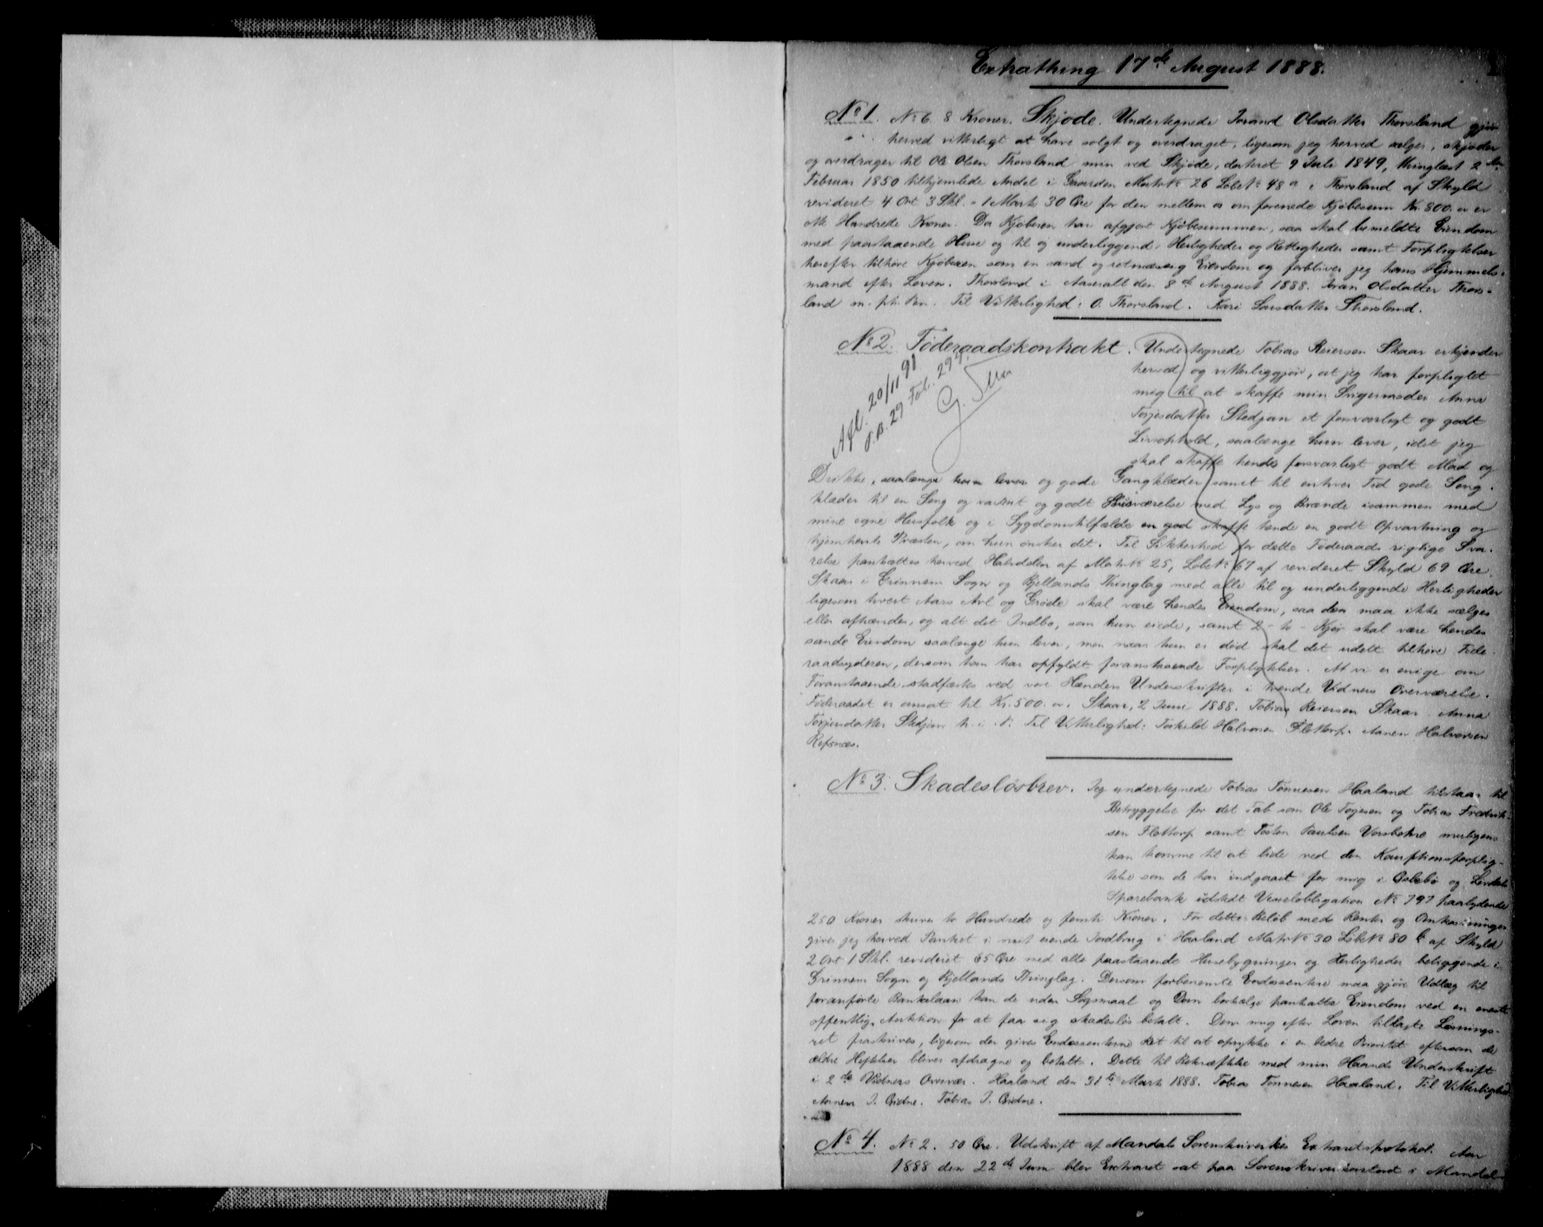 Extrathing 17de August 1888.
No 1. No 6. 8 Kroner. Skjøde. Undertegnede Jorand Olsdatter Thorsland gjør
herved vitterligt at have solgt og overdraget, ligesom jeg herved sælger, skjøder
og overdrager til Ole Olsen Thorsland min ved Skjøde, dateret 9 Juli 1849, thinglæst 2
Februar 1850 tilhjemlede Andel i Gaarden Matr No 26 Løbe No 48 a Thorsland af Skyld
revideret 4 Ort 3 Skl. = 1 Mark 30 Øre for den mellem os om forenede Kjøbesum Kr. 800.
otte Hundrede Kroner. Da Kjøberen har afgjort Kjøbesummen, saa skal bemeldte Eiendom
med paastaaende Huse og til og underliggende Herligheder og Rettigheder samt Forpligtelser
herefter tilhøre Kjøberen som en sand og retmæssig Eiendom og forbliver jeg hans Hjemmels-
mand efter Loven. Thorsland i Aaseralt den 8de August 1888. Joran Olsdatter Thors-
land m. p. Pen. Til Vitterlighed: O. Thorsland. Kari Larsdatter Thorsland.
No 2. Føderaadskontrakt. Undertegnede Tobias Reiersen Skaar erkjender
herved og vitterliggjør, at jeg har forpligtet
mig til at skaffe min Svigermoder Anna
Torjesdatter Stedjan et forsvarligt og godt
Livsophold, saalænge hun lever, idet jeg
skal skaffe hende forsvarligt godt Mad og
Afl. 20/11 91
P.B. 29 Fol. 299.
Drikke, saalænge hun lever og gode Gangklæder samt til enhver Tid gode Seng-
klæder til en Seng og varmt og godt Husværelse med Lys og Brænde isammen med
mine egne Husfolk og i Sygdomstilfælde en god skaffe hende en godt Opvartning og
hjemhente Præsten, om hun ønsker det. Til Sikkerhed for dette Føderaads rigtige Sva-
relse pantsættes herved Halvdelen af Matr No 25, Løbe No 67 af revideret Skyld 69 Øre
Skaar i Grinnem Sogn og Bjellands Thinglag med alle til og underliggende Herligheder
ligesom hvert Aars Avl og Grøde skal være hendes Eiendom, saa den maa ikke sælges
eller afhændes, og alt det Indbo, som hun eiede, samt 2 - to - Kjør skal være hendes
sande Eiendom saalænge hun lever, men naar hun er død skal det udelt tilhøre Føde-
raadsyderen, dersom han har opfyldt foranstaaende Forpligtelser. At vi er enige om
Foranstaaende stadfæstes ved vore Hænders Underskrifter i tvende Vidners Overværelse.
Føderaadet er ansat til Kr. 500. Skaar, 2 Juni 1888. Tobias Reiersen Skaar. Anna
Torjesdatter Stedjan m. i. P. Til Vitterlighed: Torkild Halvorsen Flottorp. Aanen Halvorsen
Refsnæs.
No 3. Skadesløsbrev. Jeg undertegnede Tobias Tønnesen Haaland tilstaar til
Betryggelse for det Tab som Ole Torjesen og Tobias Fredrik-
sen Flottorp samt Tosten Paulsen muligens
kan komme til at lide ved den Kautionsforplig-
telse som de har indgaaet for mig i og
Sparebank udstedt Vexelobligation No 797 paalydende
250 Kroner skriver to Hundrede og femti Kroner. For dette Beløb med Renter og Omkostninger
giver jeg herved Panteret i mit eiende Jordbrug i Haaland Matr No 30 Løbe No 80 b af Skyld
2 Ort 1 Skl. revideret 65 Øre med alle paastaaende Husebygninger og Herligheder beliggende i
Grinnem Sogn og Bjellands Thinglag. Dersom forbenævnte Endossentere maa gjøre Udlæg til
foranførte Bankelaan kan de uden Søgsmaal og Dom bortsælge pantsatte Eiendom ved en eneste
offentlig Auktion for at faa sig skadesløs betalt. Den mig efter Loven tillagte Løsnings-
ret fraskrives, ligesom der gives Endossenterne Ret til at oprykke i en bedre Prioritet eftersom de
ældre Heftelser bliver afdragne og betalt. Dette til Bekræftelse med min Haands Underskrift
i 2de Vidners Overvær. Haaland den 31te Marts 1888. Tobias Tønnesen Haaland. Til Vitterlighed
Aanen J. Tobias J.
No 4. No 2. 50 Øre. Udskrift af Mandals Sorenskriveries Extraretsprotokol. Aar
1888 den 22de Juni blev Extraret sat paa Sorenskriverkontoret i Mandal